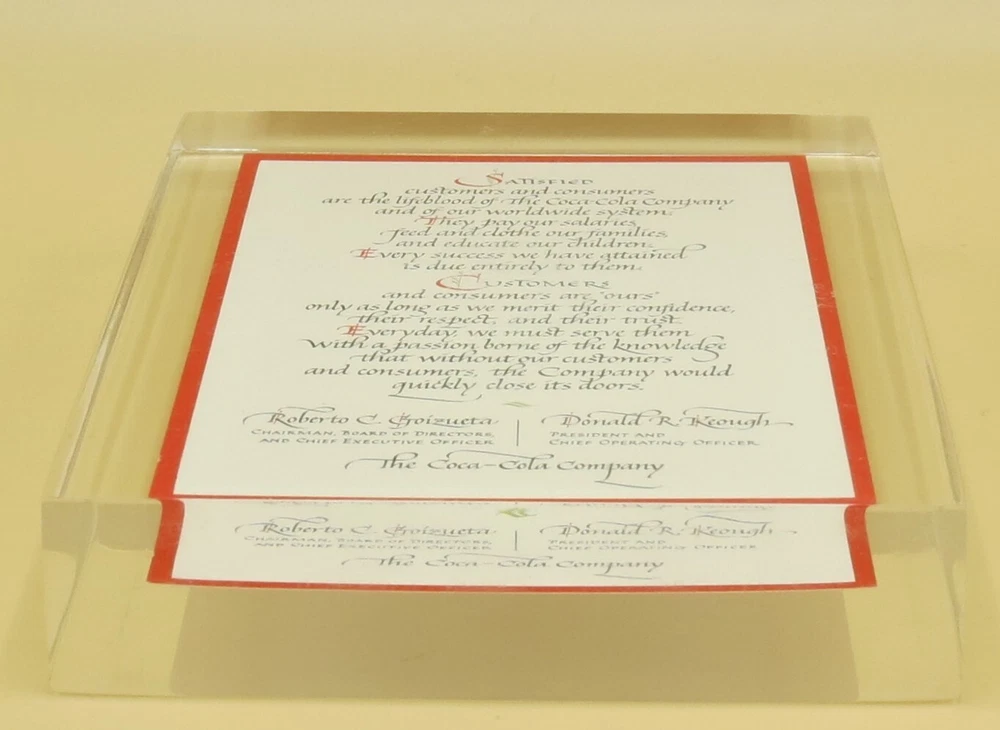 Satisfied
customers and consumers
are the lifeblood of The Coca-Cola Company
and of our worldwide system.
They pay our salaries,
feed and clothe our families,
and educate our children.
Every success we have attained
is due entirely to them.
Customers
and consumers are "ours"
only as long as we merit their confidence,
their respect, and their trust.
Everyday, we must serve them
with a passion borne of the knowledge
that without our customers
and consumers, the Company would
quickly close its doors.
Roberto C. Goizueta
Chairman, Board of Directors,
and Chief Executive Officer
Donald R. Keough
President and
Chief Operating Officer
The Coca-Cola Company
Roberto C. Goizueta
Chairman, Board of Directors,
and Chief Executive Officer
Donald R. Keough
President and
Chief Operating Officer
The Coca-Cola Company